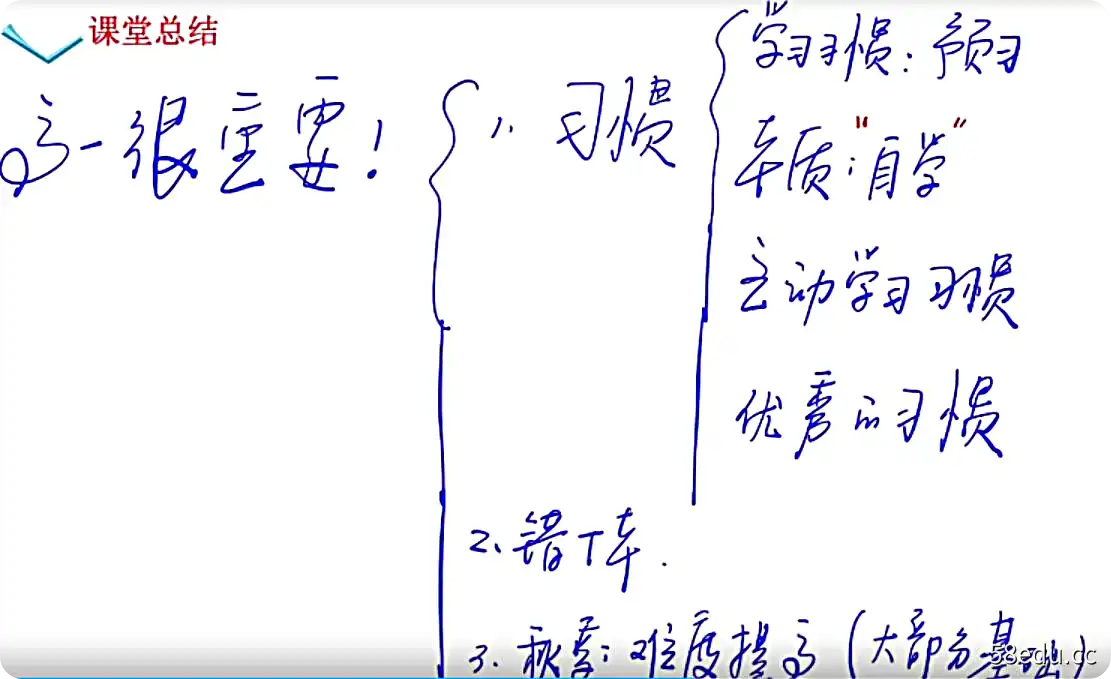 课堂总结
高一很重要!
1. 习惯
学习习惯:预习
本质:"自学"
主动学习习惯
优秀的习惯
2、错T本.
3. 秋季:难度提高(大部分基础)
58edu.cc